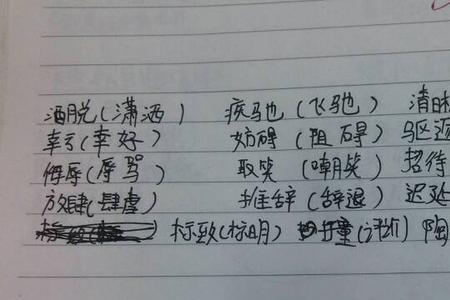 洒脱(潇洒) 疾驰(飞驰) 清晰
幸亏(幸好) 妨碍(阻碍) 驱逐
侮辱(辱骂) 取笑(嘲笑) 招待
放肆(肆虐) 推辞(辞退) 迟延
标致(标明) (评价) 陶